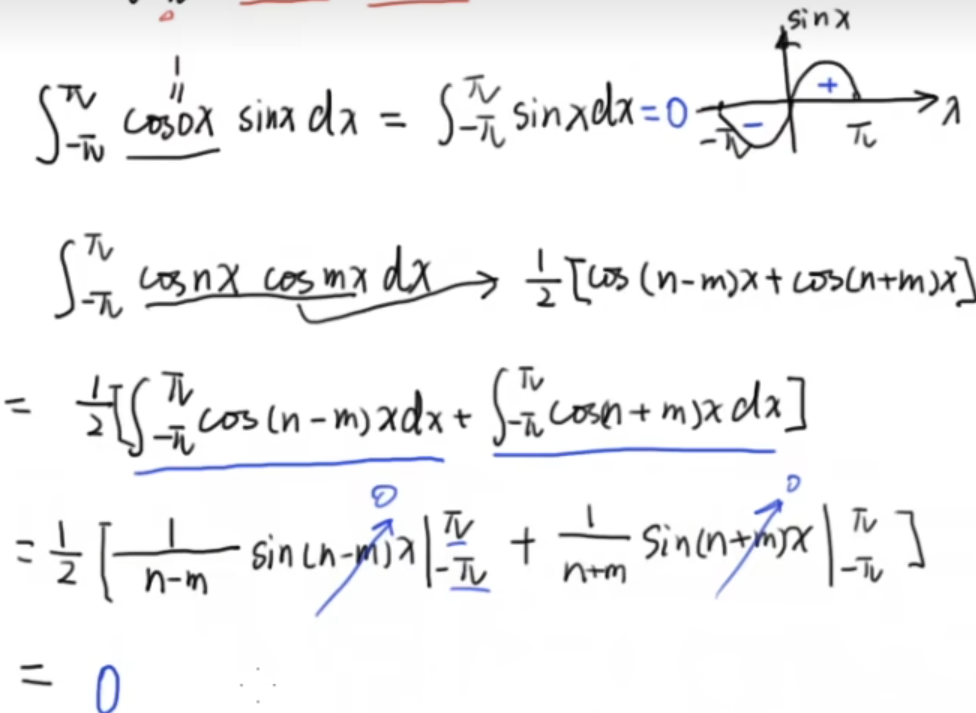 sinx
1
||
∫_{-π}^{π} cos0x sinx dx = ∫_{-π}^{π} sinxdx = 0
+
-
-π π x
∫_{-π}^{π} cosnx cosmx dx → 1/2 [cos(n-m)x + cos(n+m)x]
= 1/2 [∫_{-π}^{π} cos(n-m)xdx + ∫_{-π}^{π} cos(n+m)x dx]
0 0
= 1/2 [1/(n-m) sin(n-m)x |_{-π}^{π} + 1/(n+m) sin(n+m)x |_{-π}^{π}]
= 0